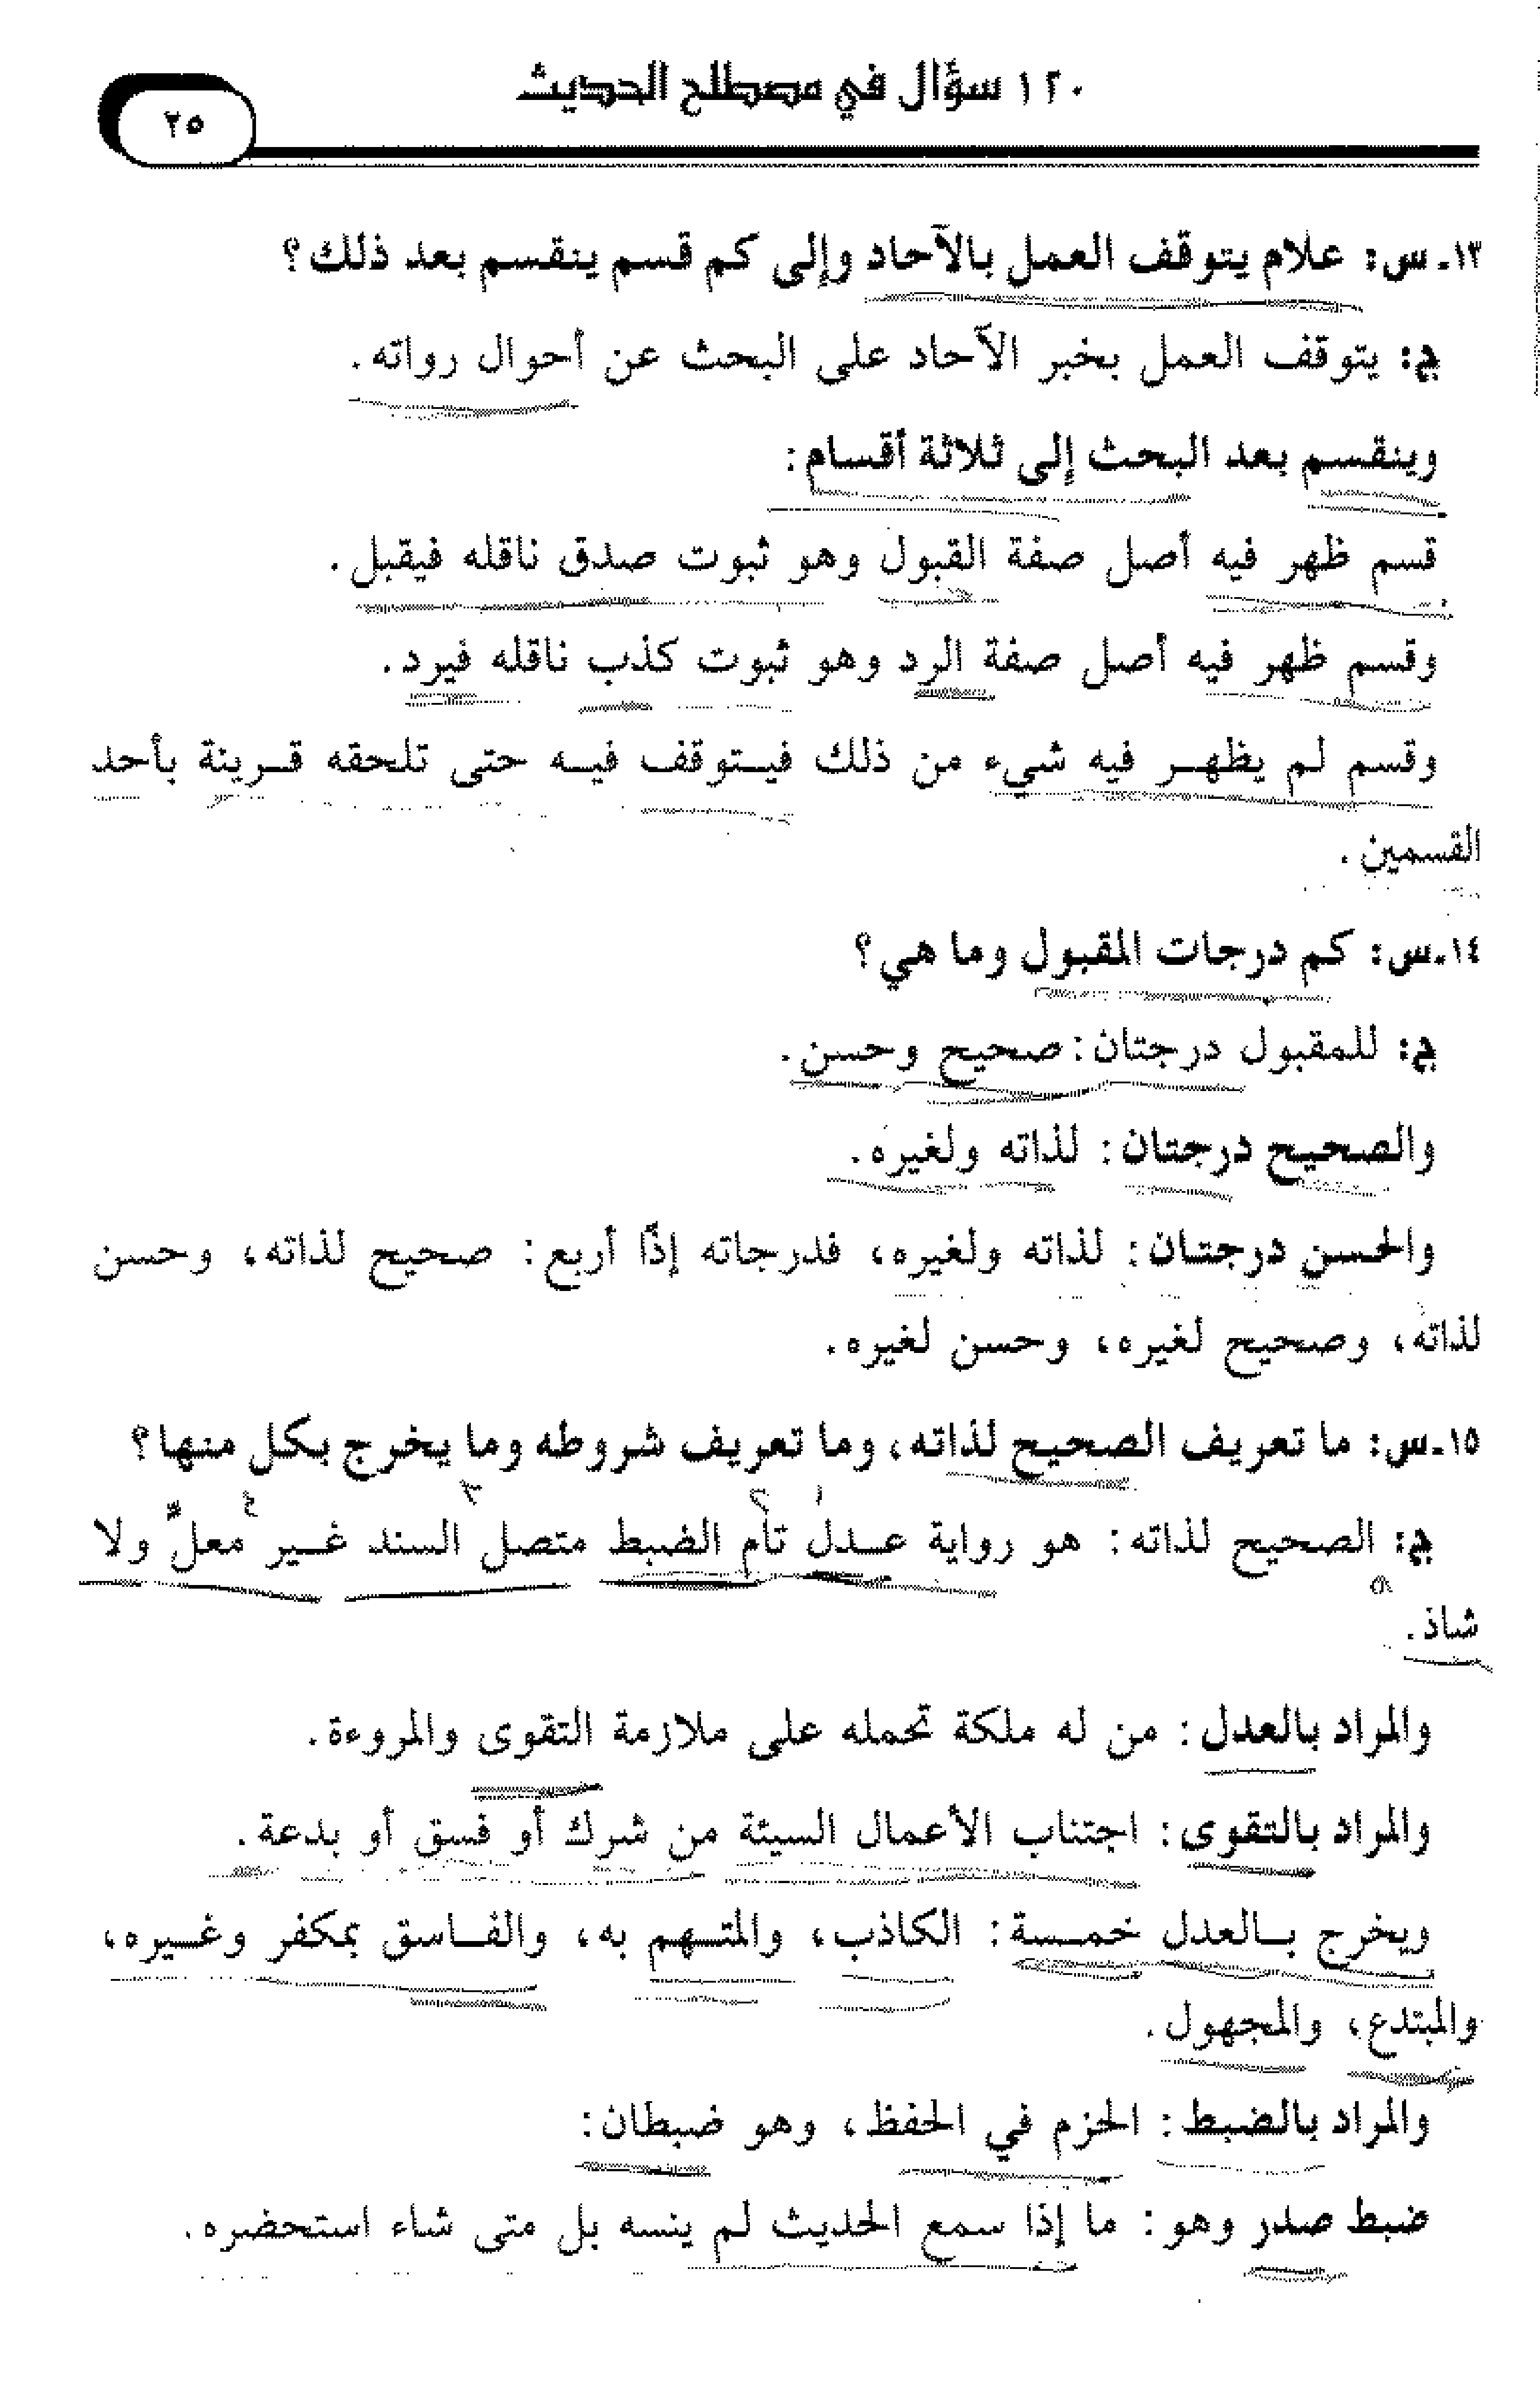 ١٢٠ سؤال في مصطلح الحديث
٢٥
١٣ـ س: علام يتوقف العمل بالآحاد وإلى كم قسم ينقسم بعد ذلك؟
ج: يتوقف العمل بخبر الآحاد على البحث عن أحوال رواته.
وينقسم بعد البحث إلى ثلاثة أقسام:
قسم ظهر فيه أصل صفة القبول وهو ثبوت صدق ناقله فيقبل.
وقسم ظهر فيه أصل صفة الرد وهو ثبوت كذب ناقله فيرد.
وقسم لم يظهر فيه شيء من ذلك فيتوقف فيه حتى تلحقه قرينة بأحد
القسمين.
١٤ـ س: كم درجات المقبول وما هي؟
ج: للمقبول درجتان: صحيح وحسن.
والصحيح درجتان: لذاته ولغيره.
والحسن درجتان: لذاته ولغيره، فدرجاته إذًا أربع: صحيح لذاته، وحسن
لذاته، وصحيح لغيره، وحسن لغيره.
١٥ـ س: ما تعريف الصحيح لذاته، وما تعريف شروطه وما يخرج بكل منها؟
١ ٢ ٣ ٤
ج: الصحيح لذاته: هو رواية عدل تام الضبط متصل السند غير معلٍّ ولا
٥
شاذ.
والمراد بالعدل: من له ملكة تحمله على ملازمة التقوى والمروءة.
والمراد بالتقوى: اجتناب الأعمال السيئة من شرك أو فسق أو بدعة.
ويخرج بالعدل خمسة: الكاذب، والمتهم به، والفاسق بمكفر وغيره،
والمبتدع، والمجهول.
والمراد بالضبط: الحزم في الحفظ، وهو ضبطان:
ضبط صدر وهو: ما إذا سمع الحديث لم ينسه بل متى شاء استحضره.